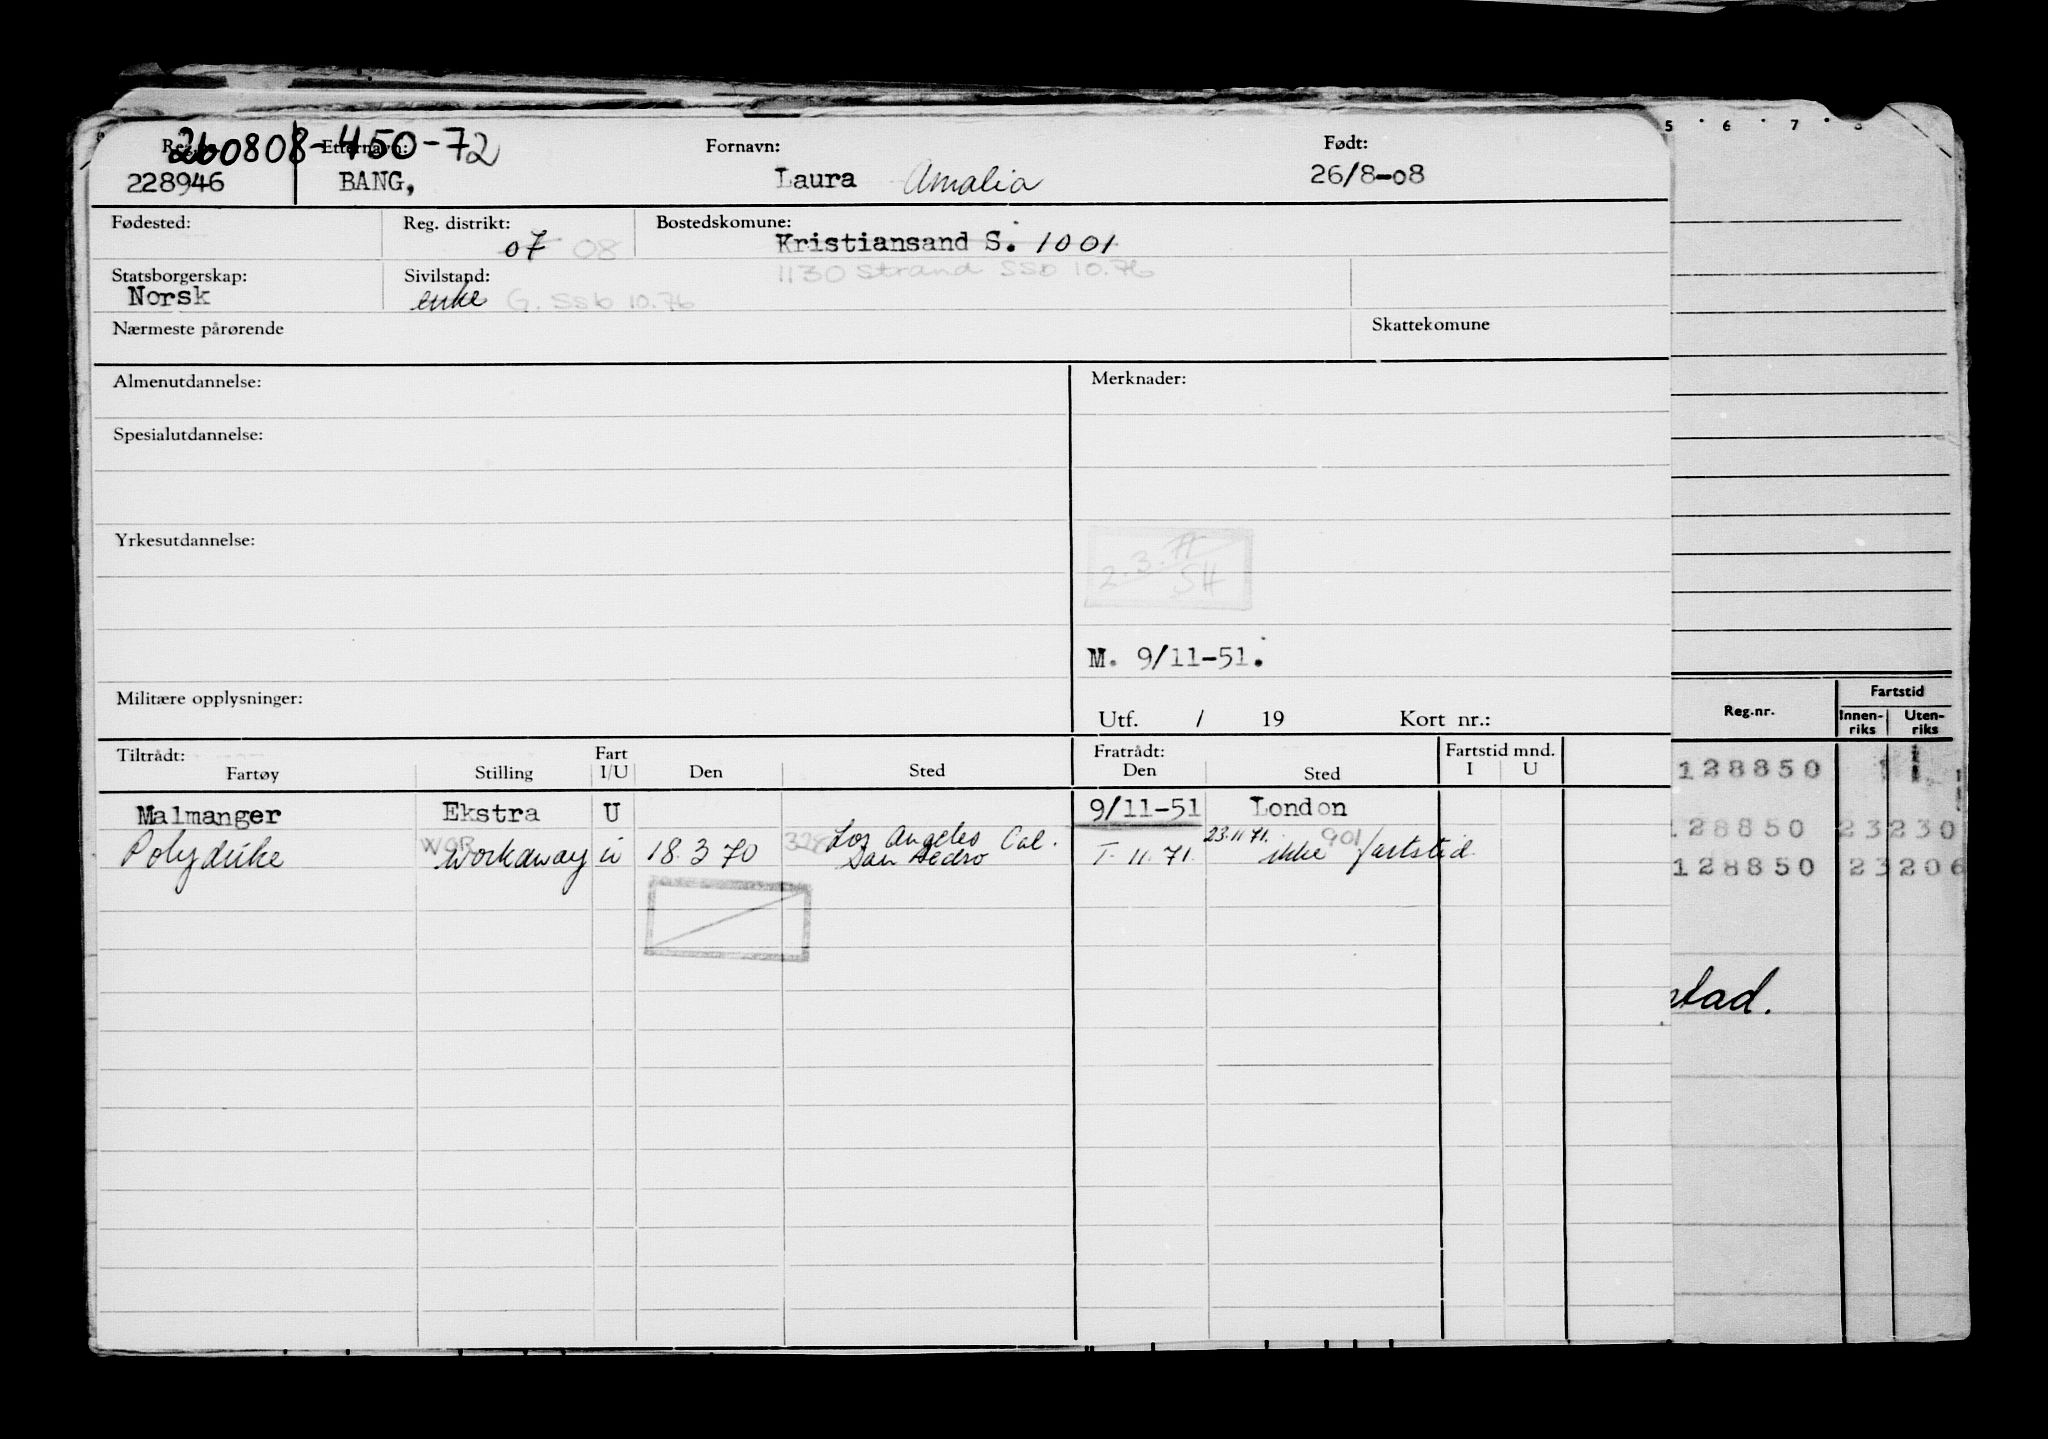 260808-450-72
Reg. Etternavn: Fornavn: Født:
228946 BANG, Laura Amalia 26/8-08
Fødested: Reg. distrikt: Bostedskomune:
07 08 Kristiansand S. 1001
1130 Strand SSb 10.76
Statsborgerskap: Sivilstand:
Norsk enke G. SSb 10.76
Nærmeste pårørende Skattekomune
Almenutdannelse: Merknader:
Spesialutdannelse:
Yrkesutdannelse:
2.3.77
SH
M. 9/11-51.
Militære opplysninger:
Utf. / 19 Kort nr.:
Tiltrådt: Fart Fratrådt: Fartstid mnd.
Fartøy Stilling I/U Den Sted Den Sted I U
Malmanger Ekstra U 9/11-51 London
Polyduke WOR workaway u 18.3 70 328 Los Angeles Cal. San Pedro T. 11. 71. 23.11 71. 901 ikke fartstid.
5 6 7
Reg.nr. Fartstid
Innen-riks Uten-riks
128850 1 1
128850 23 230
128850 23 206
stad.